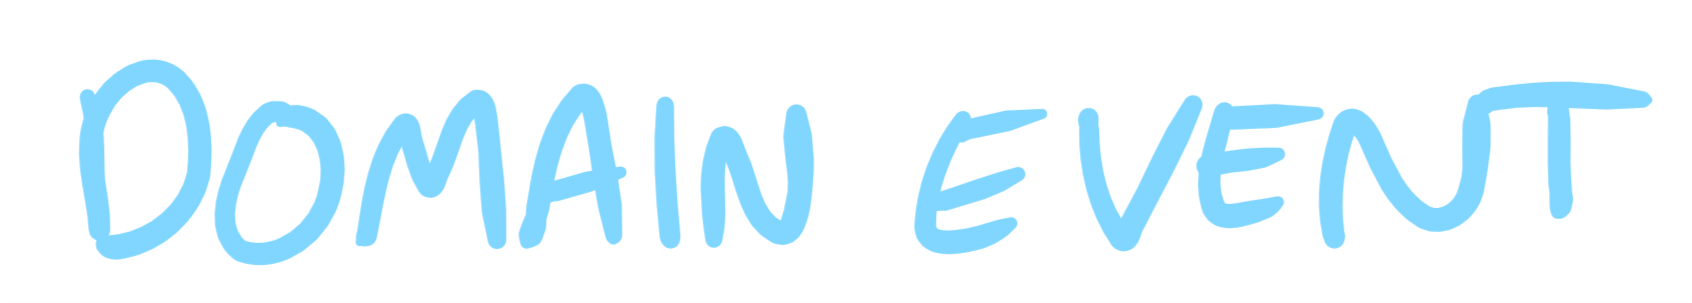 DOMAIN EVENT